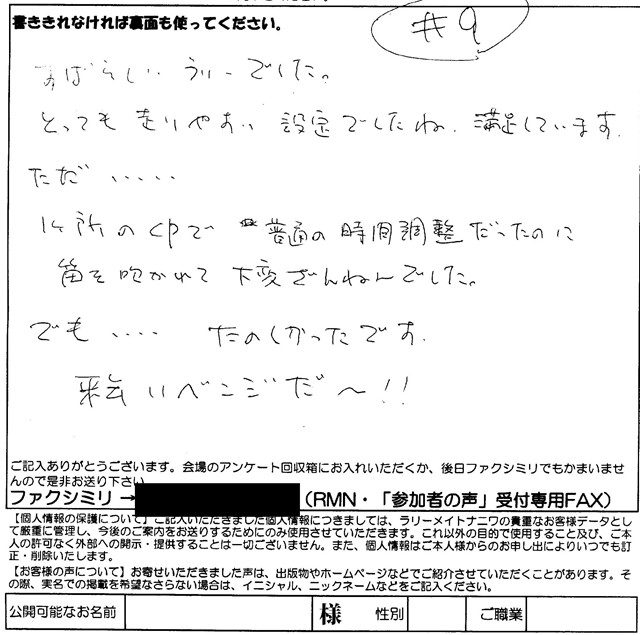 書ききれなければ裏面も使ってください。
#9
すばらしい ラリーでした。
とっても 走りやすい 設定でしたね. 満足しています.
ただ ・・・・・
1ヶ所のCPで 普通の時間調整だったのに
笛を吹かれて 大変ざんねんでした。
でも ・・・・ たのしかったです.
リベンジだ〜!!
ご記入ありがとうございます。会場のアンケート回収箱にお入れいただくか、後日ファクシミリでもかまいませ
んので是非お送り下さい
ファクシミリ→ (RMN・「参加者の声」受付専用FAX)
【個人情報の保護について】ご記入いただきました個人情報につきましては、ラリーメイトナニワの貴重なお客様データとし
て厳重に管理し、今後のご案内をお送りするためにのみ使用させていただきます。これ以外の目的で使用すること及び、ご本
人の許可なく外部への開示・提供することは一切ございません。また、個人情報はご本人様からのお申し出によりいつでも訂
正・削除いたします。
【お客様の声について】お寄せいただきました声は、出版物やホームページなどでご紹介させていただくことがあります。そ
の際、実名での掲載を希望なさらない場合は、イニシャル、ニックネームなどをご記入ください。
公開可能なお名前 様 性別 ご職業